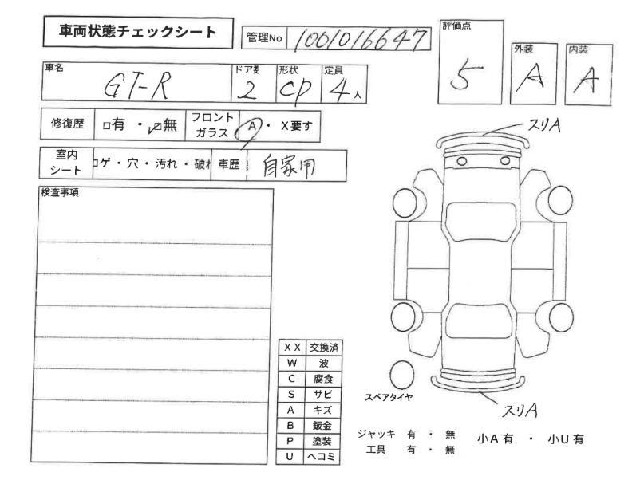 車両状態チェックシート
管理No 1001016647
評価点 5
外装 A
内装 A
車名 GT-R
ドア数 2
形状 CP
定員 4人
修復歴 □有 ・ ☑無
フロントガラス A ・ X要す
室内シート コゲ・穴・汚れ・破れ
車歴 自家用
検査事項
スリA
XX 交換済
W 波
C 腐食
S サビ
A キズ
B 鈑金
P 塗装
U ヘコミ
スペアタイヤ
スリA
ジャッキ 有 ・ 無
工具 有 ・ 無
小A有 ・ 小U有